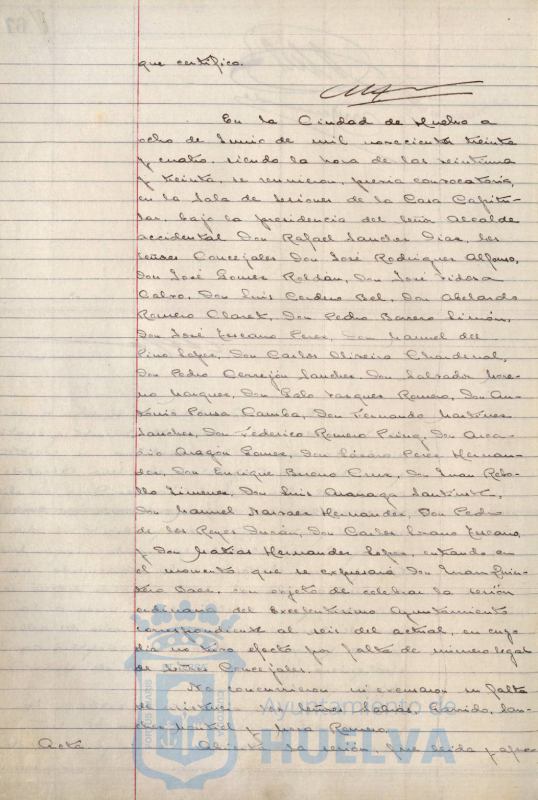 que certifico.
En la Ciudad de Huelva a
ocho de Junio de mil novecientos treinta
y cuatro, siendo la hora de las veintiuna
y treinta, se reunieron, previa convocatoria,
en la Sala de Sesiones de la Casa Capitu-
lar, bajo la presidencia del Señor Alcalde
accidental Don Rafael Sanchez Diaz, los
Señores Concejales Don José Rodriguez Alfonso,
Don José Gomez Roldán, Don José
Calvo, Don Luis Cordero Bel, Don Abelardo
Romero Claret, Don Pedro Borrero Limón,
Don José Toscano Perez, Don Manuel del
Pino Lopez, Don Carlos Oliveira Chardenal,
Don Pedro Cerrejón Sanchez, Don Salvador More-
no Marquez, Don Vazquez Romero, Don An-
tonio Pousa Camba, Don Fernando Martinez
Sanchez, Don Federico Romero Don Arca-
dio Aragón Gomez, Don Perez Hernan-
dez, Don Enrique Bueno Cruz, Don Juan Rebo-
llo Jimenez, Don Luis
Don Manuel Narvaez Hernandez, Don Pedro
de los Reyes Durán, Don Carlos Lozano Toscano
y Don Matias Hernandez Lopez, entrando en
el momento que se expresará Don Juan Quin-
tero Baez, con objeto de celebrar la sesión
ordinaria del Excelentisimo Ayuntamiento
correspondiente al seis del actual, en cuyo
dia no tuvo efecto por falta de número legal
de Señores Concejales.
No concurrieron ni excusaron su falta
de asistencia los Señores Garrido, San-
chez y Romero.
Acta. Abierta la sesión, fué leida y apro-
Ayuntamiento de
HUELVA